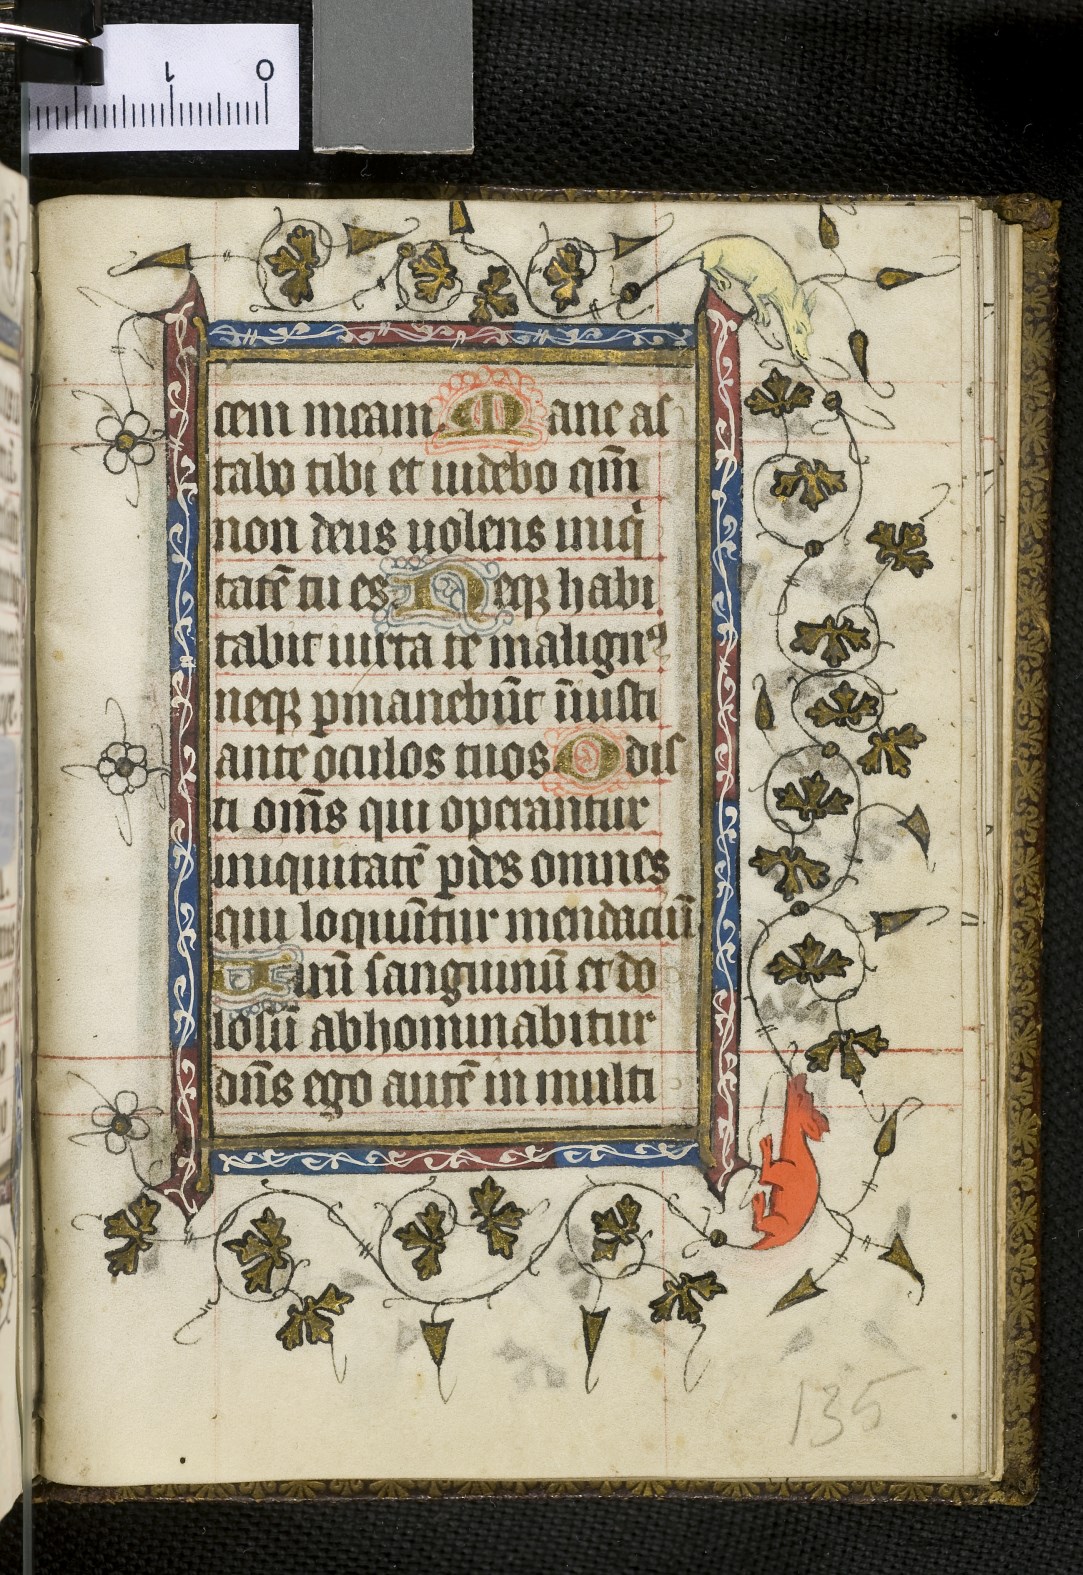 1 0
cem meam Mane as
tabo tibi et uidebo qm̄
non deus uolens iniq̇
tatē tu es Neqꝫ habi
tabit iuxta te malignꝰ
neqꝫ ꝑmanebūt iīusti
ante oculos tuos Odis
ti om̄s qui operantur
iniquitatē ꝑdes omnes
qui loquūtur mendaciū
Uirū sanguinū et do
losū abhominabitur
dn̄s ego autē in multi
135